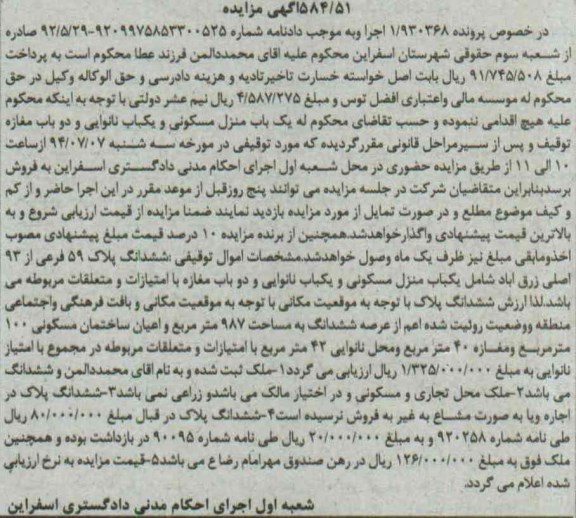 ۵۸۴/۵۱آگهی مزایده
در خصوص پرونده ۱/۹۳۰۳۶۸ اجرا وبه موجب دادنامه شماره ۹۲۰۹۹۷۵۸۵۳۳۰۰۵۲۵-۹۲/۵/۲۹ صادره
از شعبه سوم حقوقی شهرستان اسفراین محکوم علیه اقای محمددالمن فرزند عطا محکوم است به پرداخت
مبلغ ۹۱/۷۴۵/۵۰۸ ریال بابت اصل خواسته خسارت تاخیرتادیه و هزینه دادرسی و حق الوکاله وکیل در حق
محکوم له موسسه مالی واعتباری افضل توس و مبلغ ۴/۵۸۷/۲۷۵ ریال نیم عشر دولتی با توجه به اینکه محکوم
علیه هیچ اقدامی ننموده و حسب تقاضای محکوم له یک باب منزل مسکونی و یکباب نانوایی و دو باب مغازه
توقیف و پس از سیرمراحل قانونی مقررگردیده که مورد توقیفی در مورخه سه شنبه ۹۴/۰۷/۰۷ ازساعت
۱۰ الی ۱۱ از طریق مزایده حضوری در محل شعبه اول اجرای احکام مدنی دادگستری اسفراین به فروش
برسدبنابراین متقاضیان شرکت در جلسه مزایده می توانند پنج روزقبل از موعد مقرر در این اجرا حاضر و از کم
و کیف موضوع مطلع و در صورت تمایل از مورد مزایده بازدید نمایند ضمنا مزایده از قیمت ارزیابی شروع و به
بالاترین قیمت پیشنهادی واگذارخواهدشد.همچنین از برنده مزایده ۱۰ درصد قیمت مبلغ پیشنهادی مصوب
اخذومابقی مبلغ نیز ظرف یک ماه وصول خواهدشد.مشخصات اموال توقیفی :ششدانگ پلاک ۵۹ فرعی از ۹۳
اصلی زرق اباد شامل یکباب منزل مسکونی و یکباب نانوایی و دو باب مغازه با امتیازات و متعلقات مربوطه می
باشد.لذا ارزش ششدانگ پلاک با توجه به موقعیت مکانی با توجه به موقعیت مکانی و بافت فرهنگی واجتماعی
منطقه ووضعیت روئیت شده اعم از عرصه ششدانگ به مساحت ۹۸۷ متر مربع و اعیان ساختمان مسکونی ۱۰۰
مترمربع ومغازه ۴۰ متر مربع ومحل نانوایی ۴۲ متر مربع با امتیازات و متعلقات مربوطه در مجموع با امتیاز
نانوایی به مبلغ ۱/۳۲۵/۰۰۰/۰۰۰ ریال ارزیابی می گردد۱-ملک ثبت شده و به نام اقای محمددالمن و ششدانگ
می باشد۲-ملک محل تجاری و مسکونی و در اختیار مالک می باشدو زراعی نمی باشد۳-ششدانگ پلاک در
اجاره ویا به صورت مشاع به غیر به فروش نرسیده است۴-ششدانگ پلاک در قبال مبلغ ۸۰/۰۰۰/۰۰۰ ریال
طی نامه شماره ۹۲۰۲۵۸ و به مبلغ ۲۰/۰۰۰/۰۰۰ ریال طی نامه شماره ۹۰۰۹۵ در بازداشت بوده و همچنین
ملک فوق به مبلغ ۱۲۶/۰۰۰/۰۰۰ ریال در رهن صندوق مهرامام رضا ع می باشد۵-قیمت مزایده به نرخ ارزیابی
شده اعلام می گردد.
شعبه اول اجرای احکام مدنی دادگستری اسفراین